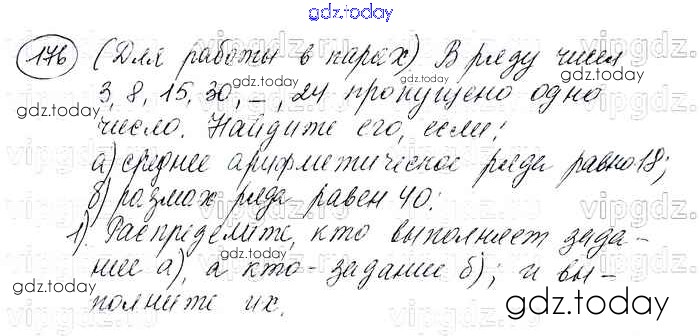 gdz.today
176 (Для работы в парах) В ряду чисел
3, 8, 15, 30, _, 24 пропущено одно
число. Найдите его, если:
а) среднее арифметическое ряда равно 18;
б) размах ряда равен 40;
1). Распределите, кто выполняет зада-
ние а), а кто - задание б); и вы-
полните их.
gdz.today
gdz.today
gdz.today
gdz.today
gdz.today